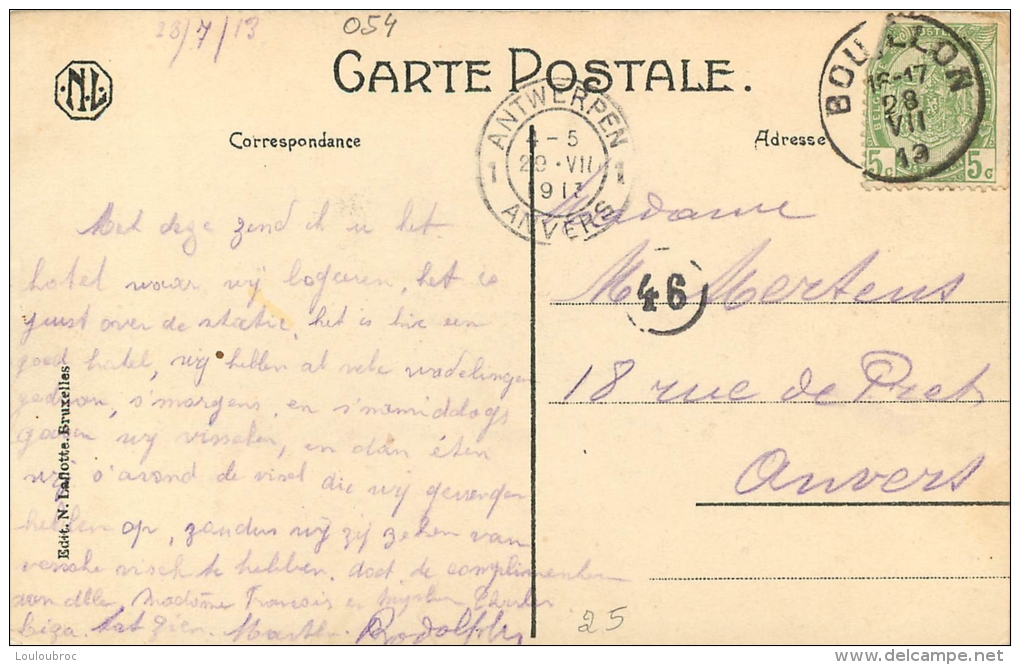 28/7/13
054
N.L.
CARTE POSTALE.
BOUILLON
16-17
28
VII
13
BELGIE
5c 5c
ANTWERPEN
4-5
1 1
29 · VII
1913
ANVERS
Correspondance
Adresse
Met deze zend ik u het
hotel waar wij logeeren, het is
juist over de statie, het is hier een
goed hotel, wij hebben al vele wandelingen
gedaan, s'morgens, en s'namiddags
gaan wij visschen, en dan éten
wij s'avond de visch die wij gevangen
hebben op, zoodus wij zij zeker van
versche visch te hebben. doet de complimenten
aan Madame François en
tot zien. Rodolphe
Madame
Mertens
46
18 rue de Pret
Anvers
25
Edit. N. Laflotte. Bruxelles
Louloubroc
delcampe.net